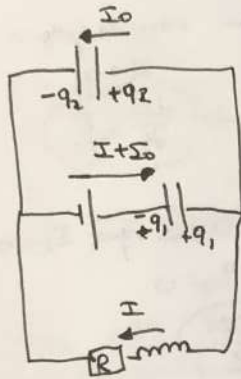 I₀
-q₂ +q₂
I+I₀
-q₁ +q₁
I
R